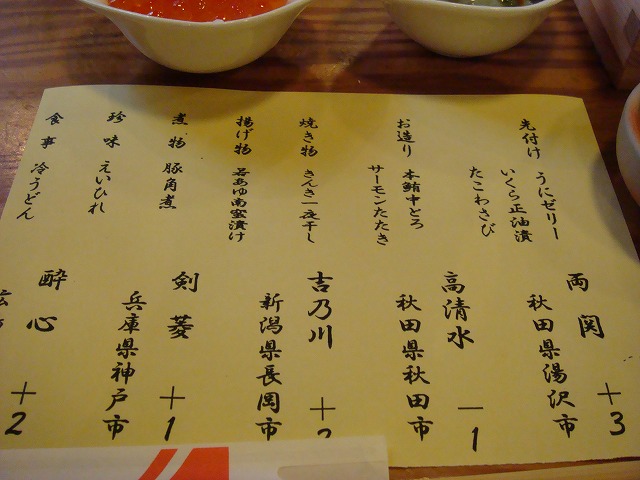 先付け うにゼリー
いくら正油漬
たこわさび
お造り 本鮪中とろ
サーモンたたき
焼き物 きんき一夜干し
揚げ物 若あゆ南蛮漬け
煮物 豚角煮
珍味 えいひれ
食事 冷うどん
両関 +3
秋田県湯沢市
高清水 -1
秋田県秋田市
吉乃川 +2
新潟県長岡市
剣菱 +1
兵庫県神戸市
酔心 +2